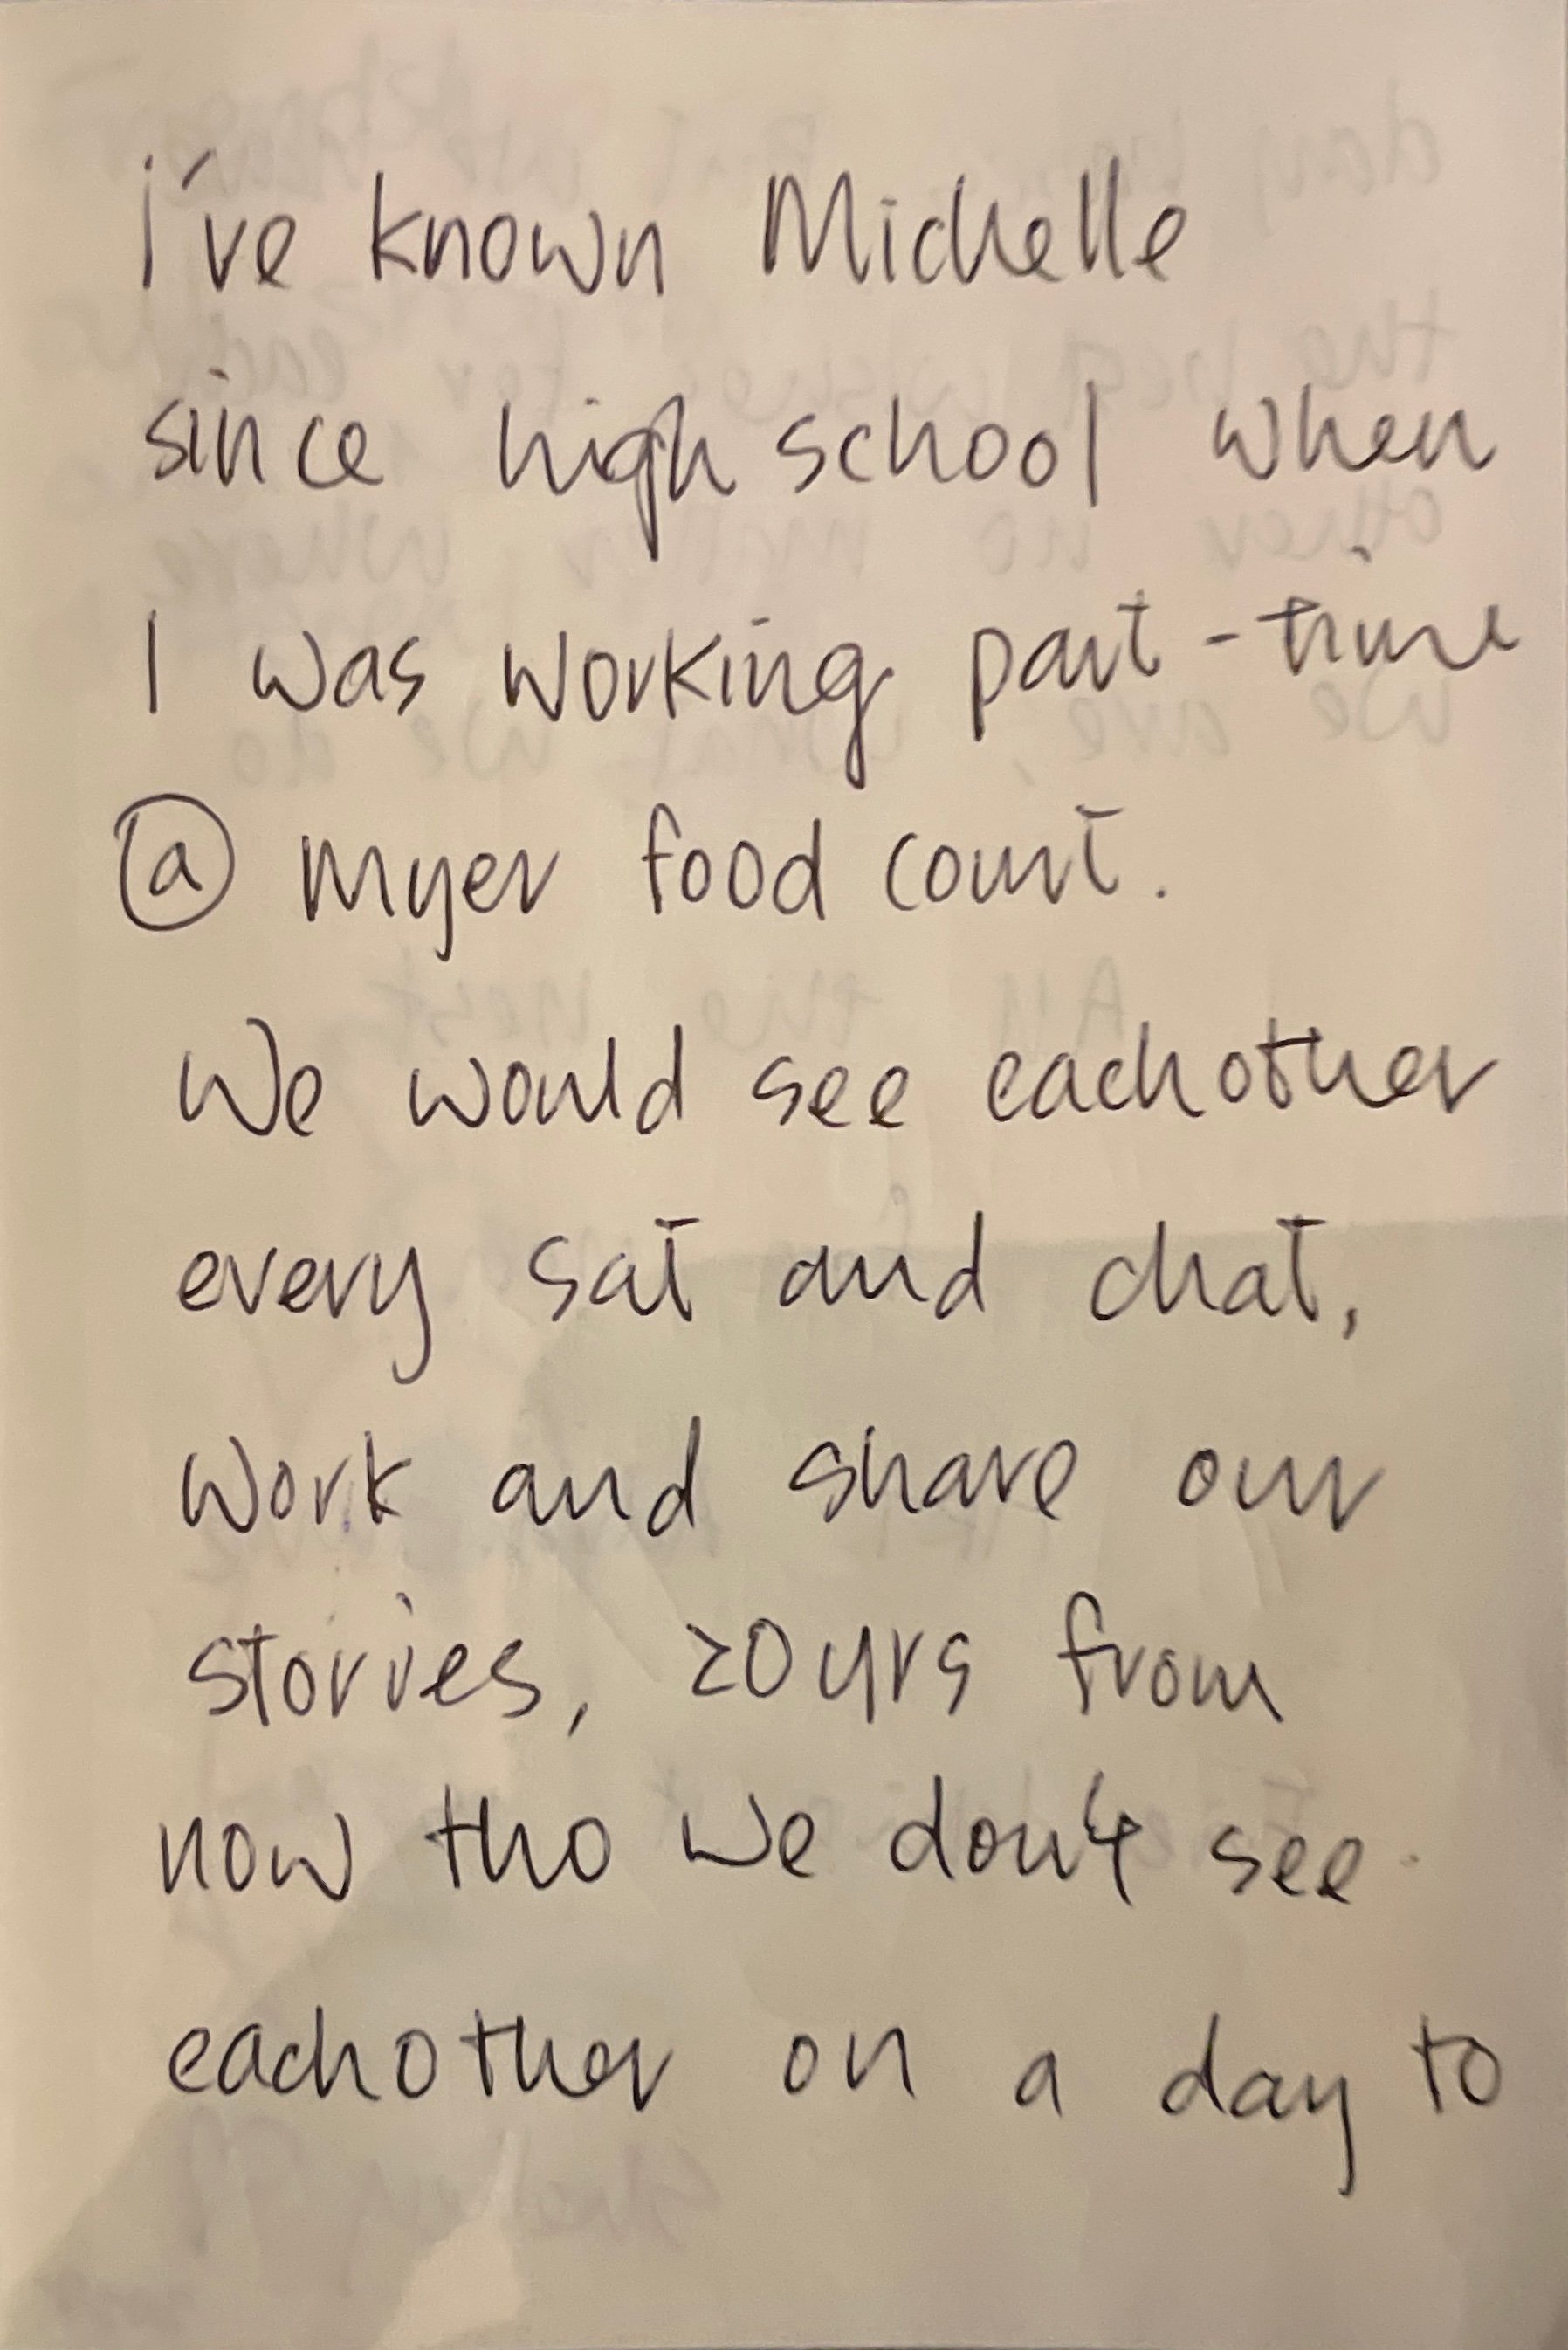 i've known Michelle
since high school when
I was working part-time
@ myer food court.
We would see eachother
every sat and chat,
work and share our
stories, 20yrs from
now tho we don't see
eachother on a day to